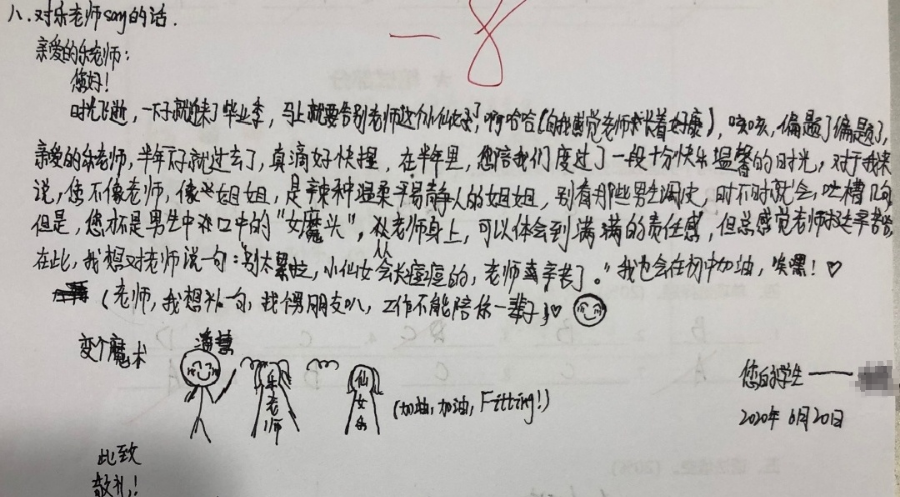 -8
八.对乐老师say的话.
亲爱的乐老师:
您好!
时光飞逝,一下子就来了毕业季,马上就要告别老师这个小仙女了,啊哈哈(自我感觉老师长着好康),咳咳,偏题了偏题了,
亲爱的乐老师,半年下子就过去了,真滴好快捏,在半年里,您陪我们度过了一段十分快乐温馨的时光,对于我来
说,您不像老师,像个姐姐,是那种温柔平易静人的姐姐,别看那些男生调皮,时不时说会,吐槽几句
但是,您亦是男生中口中的"女魔头",从老师身上,可以体会到满满的责任感,但总感觉老师好辛苦
在此,我想对老师说一句:"别太累啦,小仙女会长痘痘的,老师真辛苦了。"我也会在初中加油,嘿!♡
(老师,我想补一句,找个男朋友叭,工作不能陪你一辈子)♡
变个魔术
乐老师
仙女
(加油,加油,Fitting!)
您的学生——
2020年6月20日
此致
敬礼!